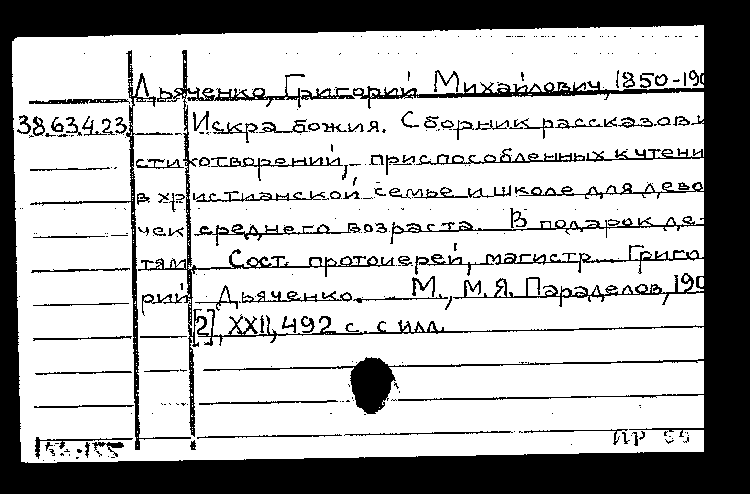 Дьяченко, Григорий Михайлович, 1850-190
38.634.23. Искра божия. Сборник рассказов и
стихотворений, приспособленных к чтени
в христианской семье и школе для дево
чек среднего возраста. В подарок де-
тям. Сост. протоиерей, магистр Григо
рий Дьяченко. М., М.Я. Параделов, 190
[2], XXII, 492 с. с илл.
ПР